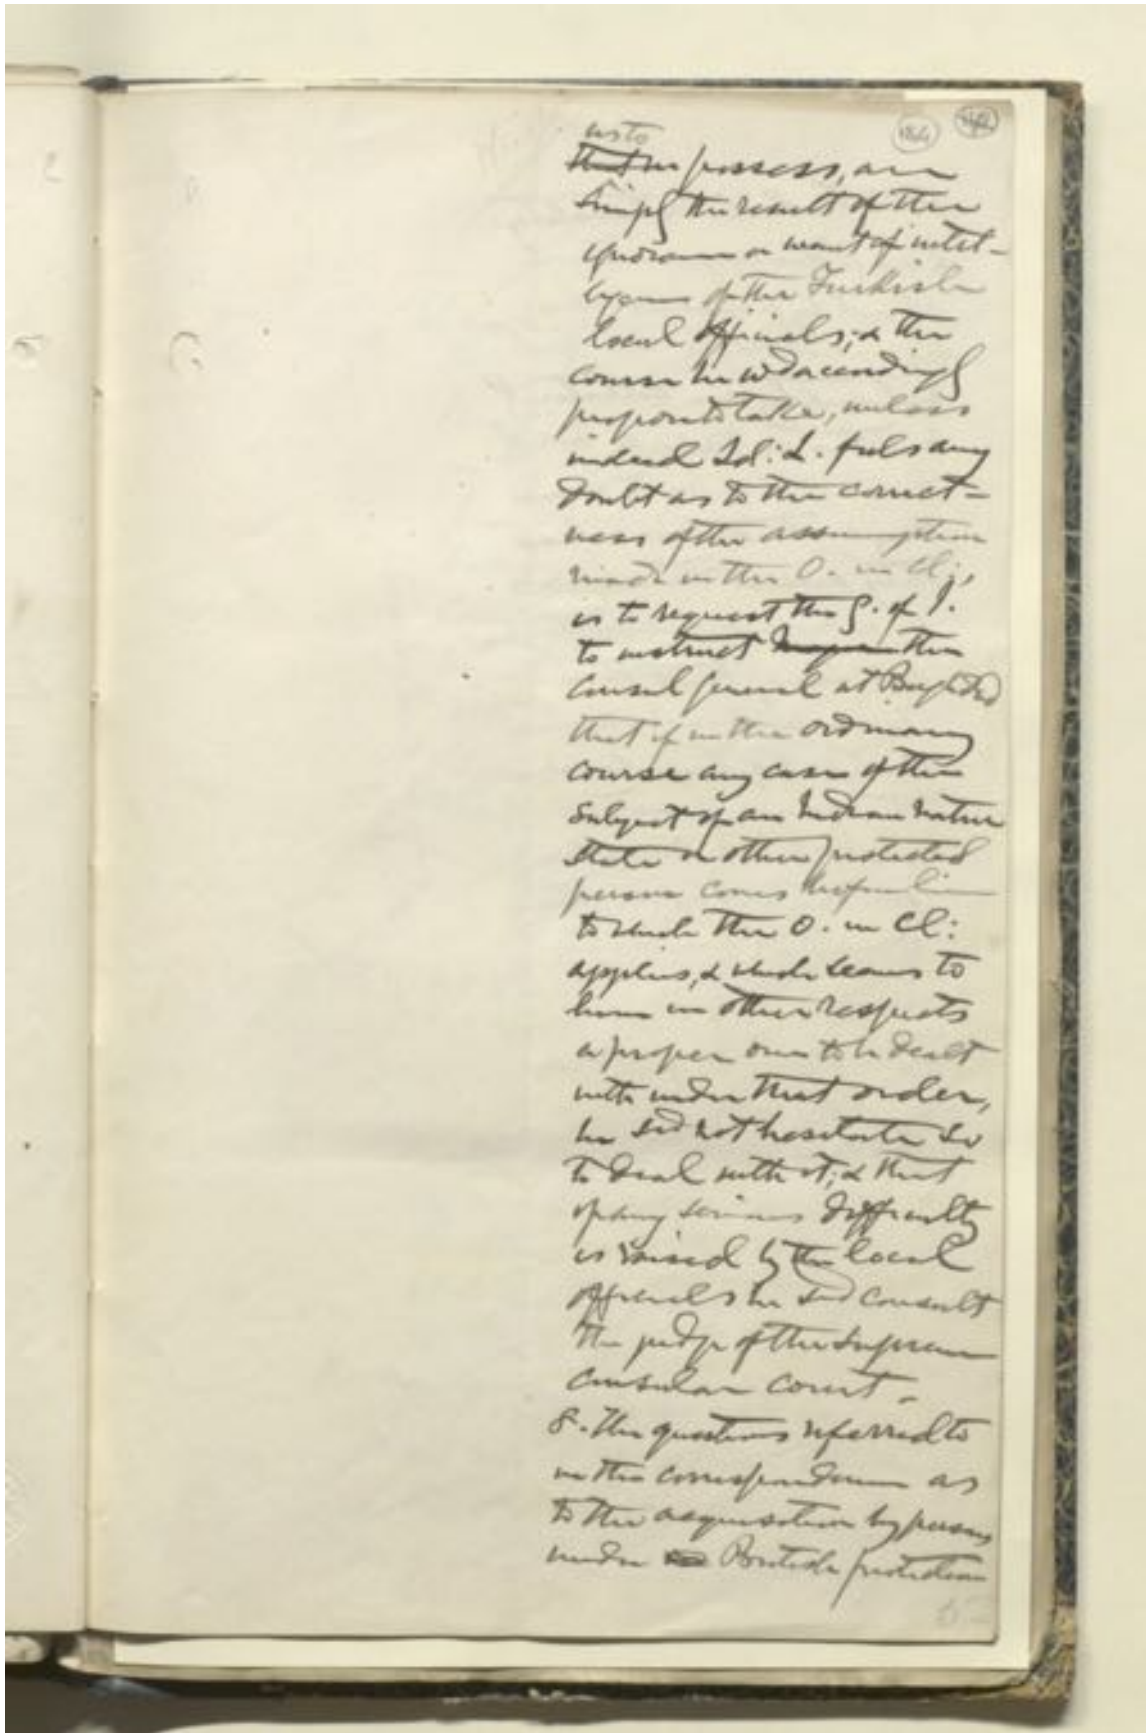 as to
that we possess, are
simply the result of the
ignorance or want of intel-
ligence of the Turkish
local officials; & the
course he wd accordingly
propose to take, unless
indeed Ld: L. feels any
doubt as to the correct-
ness of the assumption
made in the O. in Cl;,
is to request the G. of I.
to instruct the
Consul General at Baghdad
that if in the ordinary
course any case of the
subject of an Indian Native
State or other protected
person comes before him
to which the O. in Cl:
applies, & which seems to
him in other respects
a proper one to be dealt
with under that order,
he shd not hesitate so
to deal with it; & that
if any serious difficulty
is raised by the local
officials he shd consult
the judge of the Supreme
Consular Court.
8. The questions referred to
in this correspondence as
to the acquisition by persons
under British protection